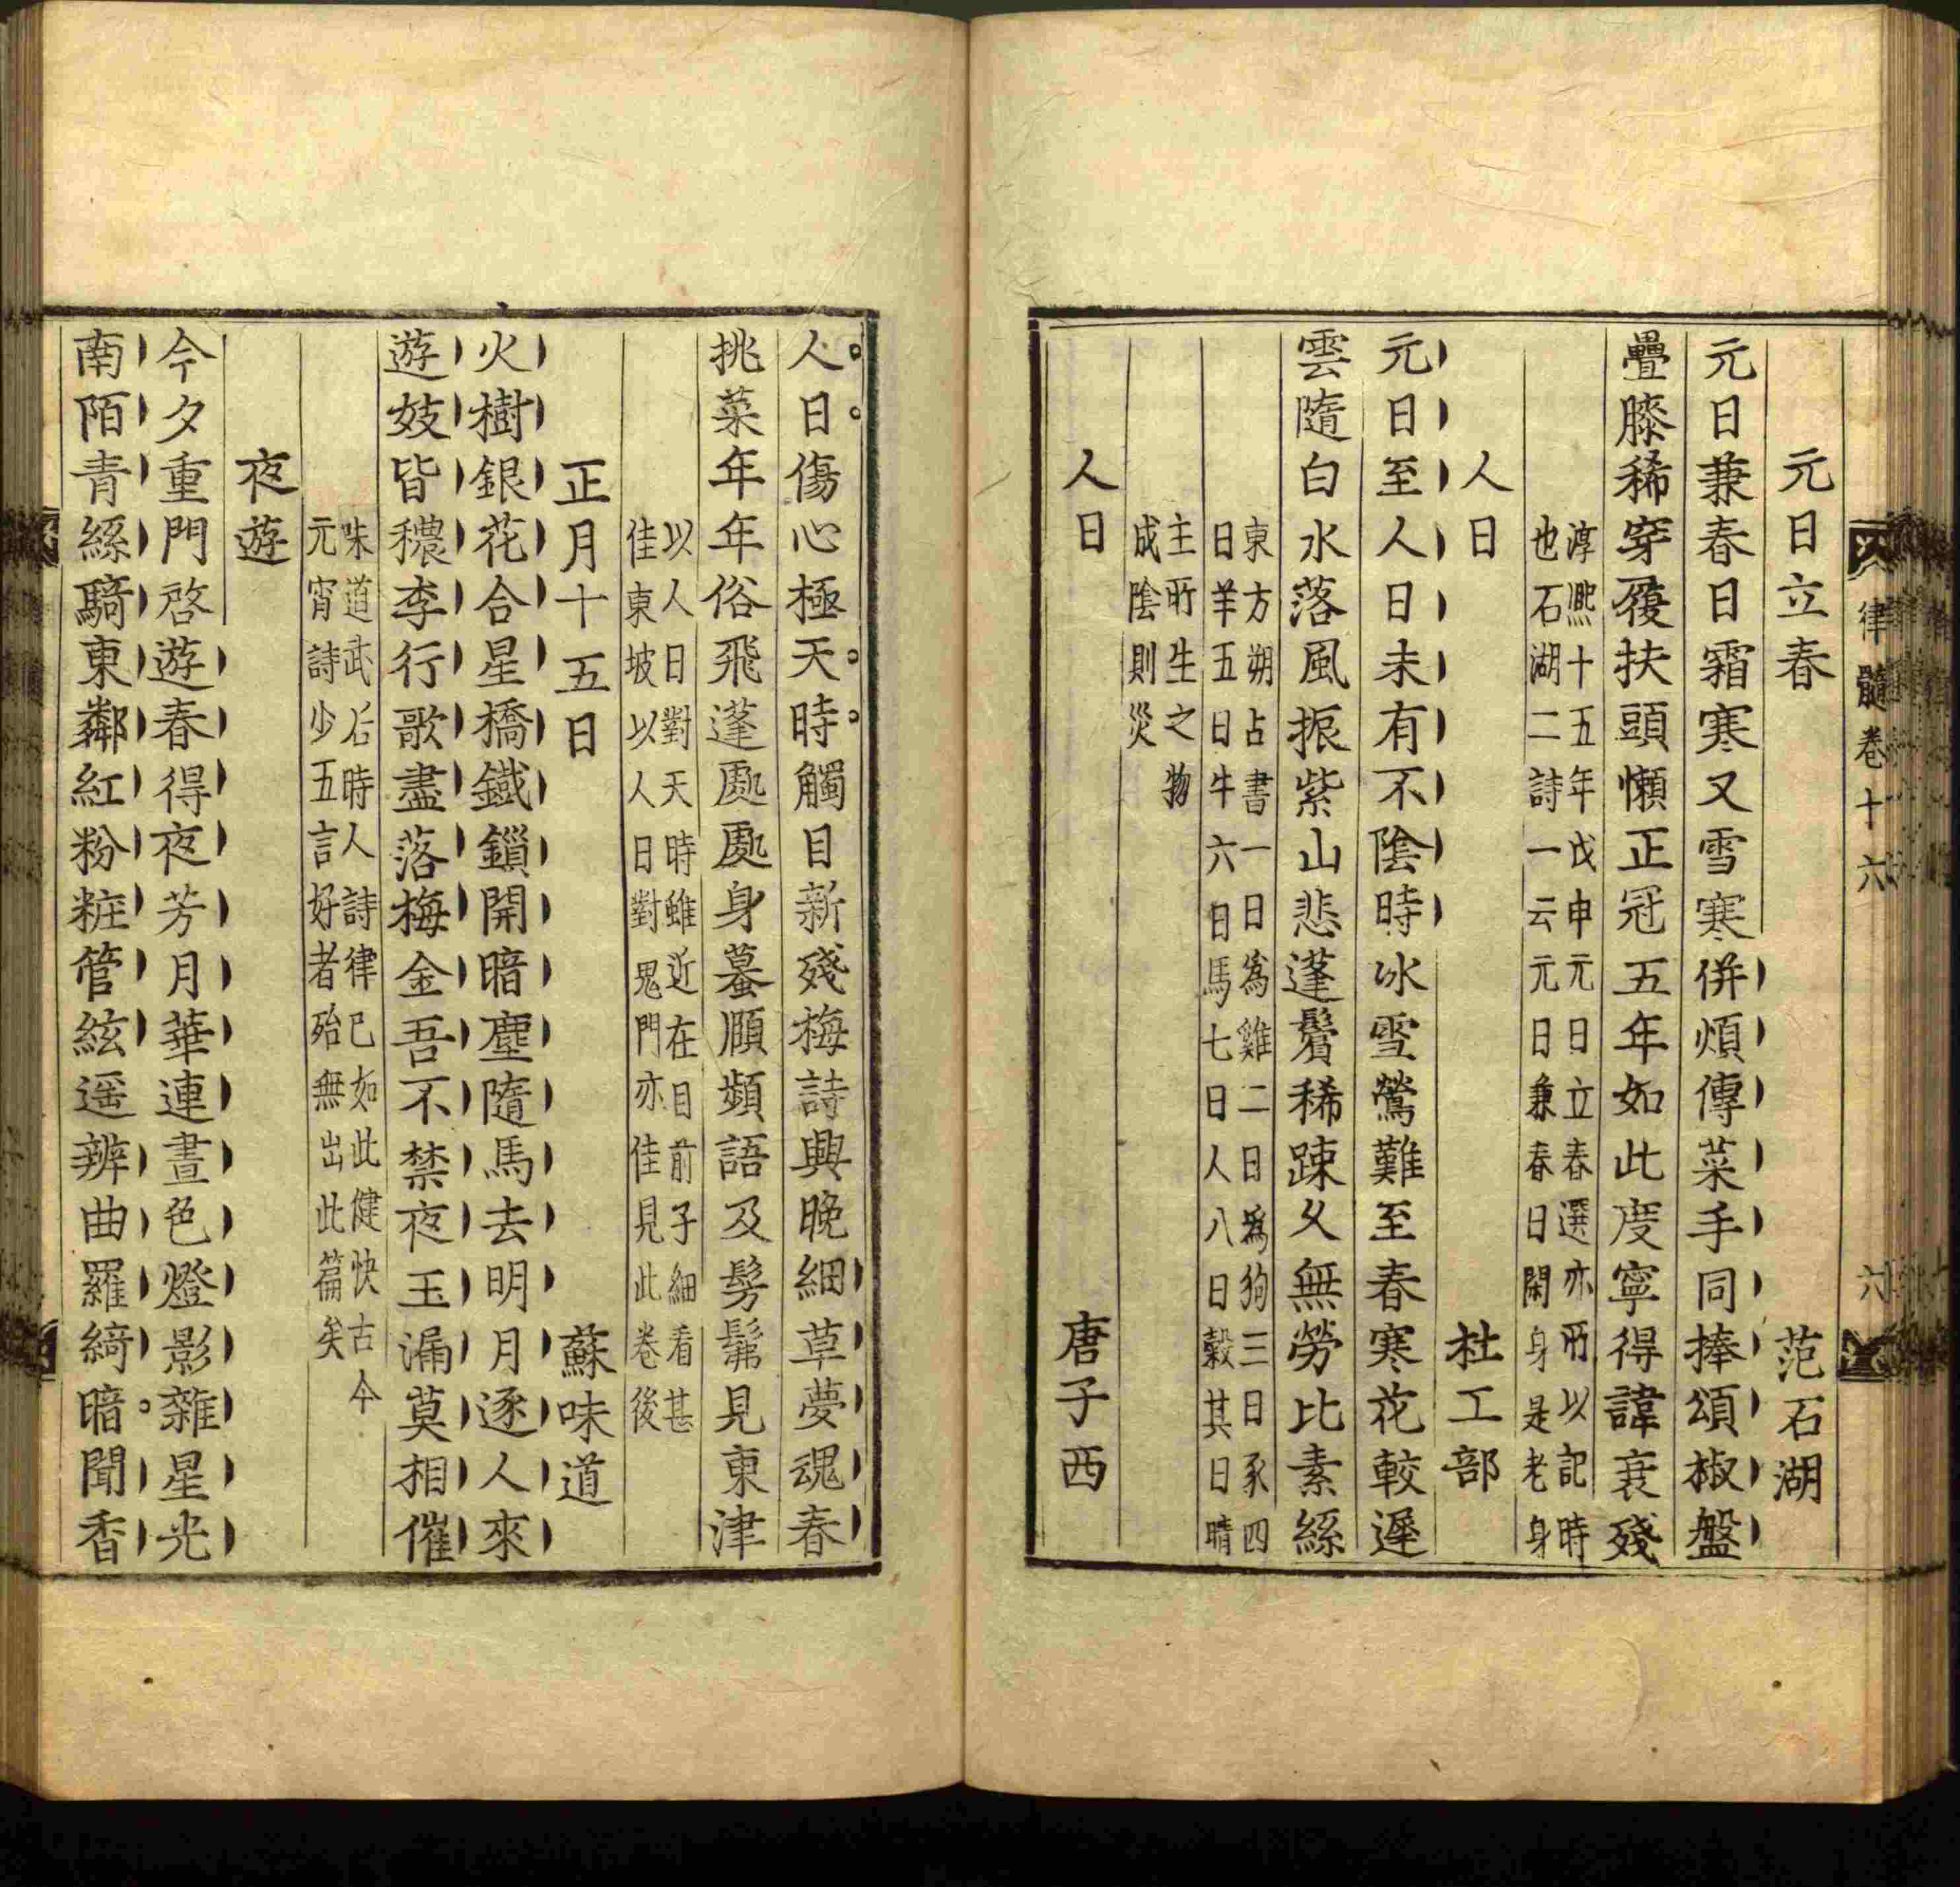 律髓卷十六 六
元日立春 范石湖
元日兼春日霜寒又雪寒併煩傳菜手同捧頌椒盤
疊膝稀穿履扶頭懶正冠五年如此度寧得諱衰殘
淳熈十五年戊申元日立春選亦所以記時
也石湖二詩一云元日兼春日閑身是老身
人日 杜工部
元日至人日未有不陰時冰雪鶯難至春寒花較遲
雲隨白水落風振紫山悲蓬鬢稀踈乆無勞比素絲
東方朔占書一日為雞二日爲狗三日豕四
日羊五日牛六日馬七日人八日穀其日晴
主所生之物
成陰則災
人日 唐子西
人日傷心極天時觸目新殘梅詩興晚細草夢魂春
挑菜年年俗飛蓬處處身蟇頥頻語及髣髴見東津
以人日對天時雖近在目前子細看甚
佳東坡以人日對鬼門亦佳見此卷後
正月十五日 蘇味道
火樹銀花合星橋鐵鎻開暗塵隨馬去明月逐人來
遊妓皆穠李行歌盡落梅金吾不禁夜玉漏莫相催
味道武后時人詩律已如此健快古今
元宵詩少五言好者殆無出此篇矣
夜遊
今夕重門啓遊春得夜芳月華連晝色燈影雜星光
南陌青絲騎東鄰紅粉粧管絃遥辨曲羅綺暗聞香